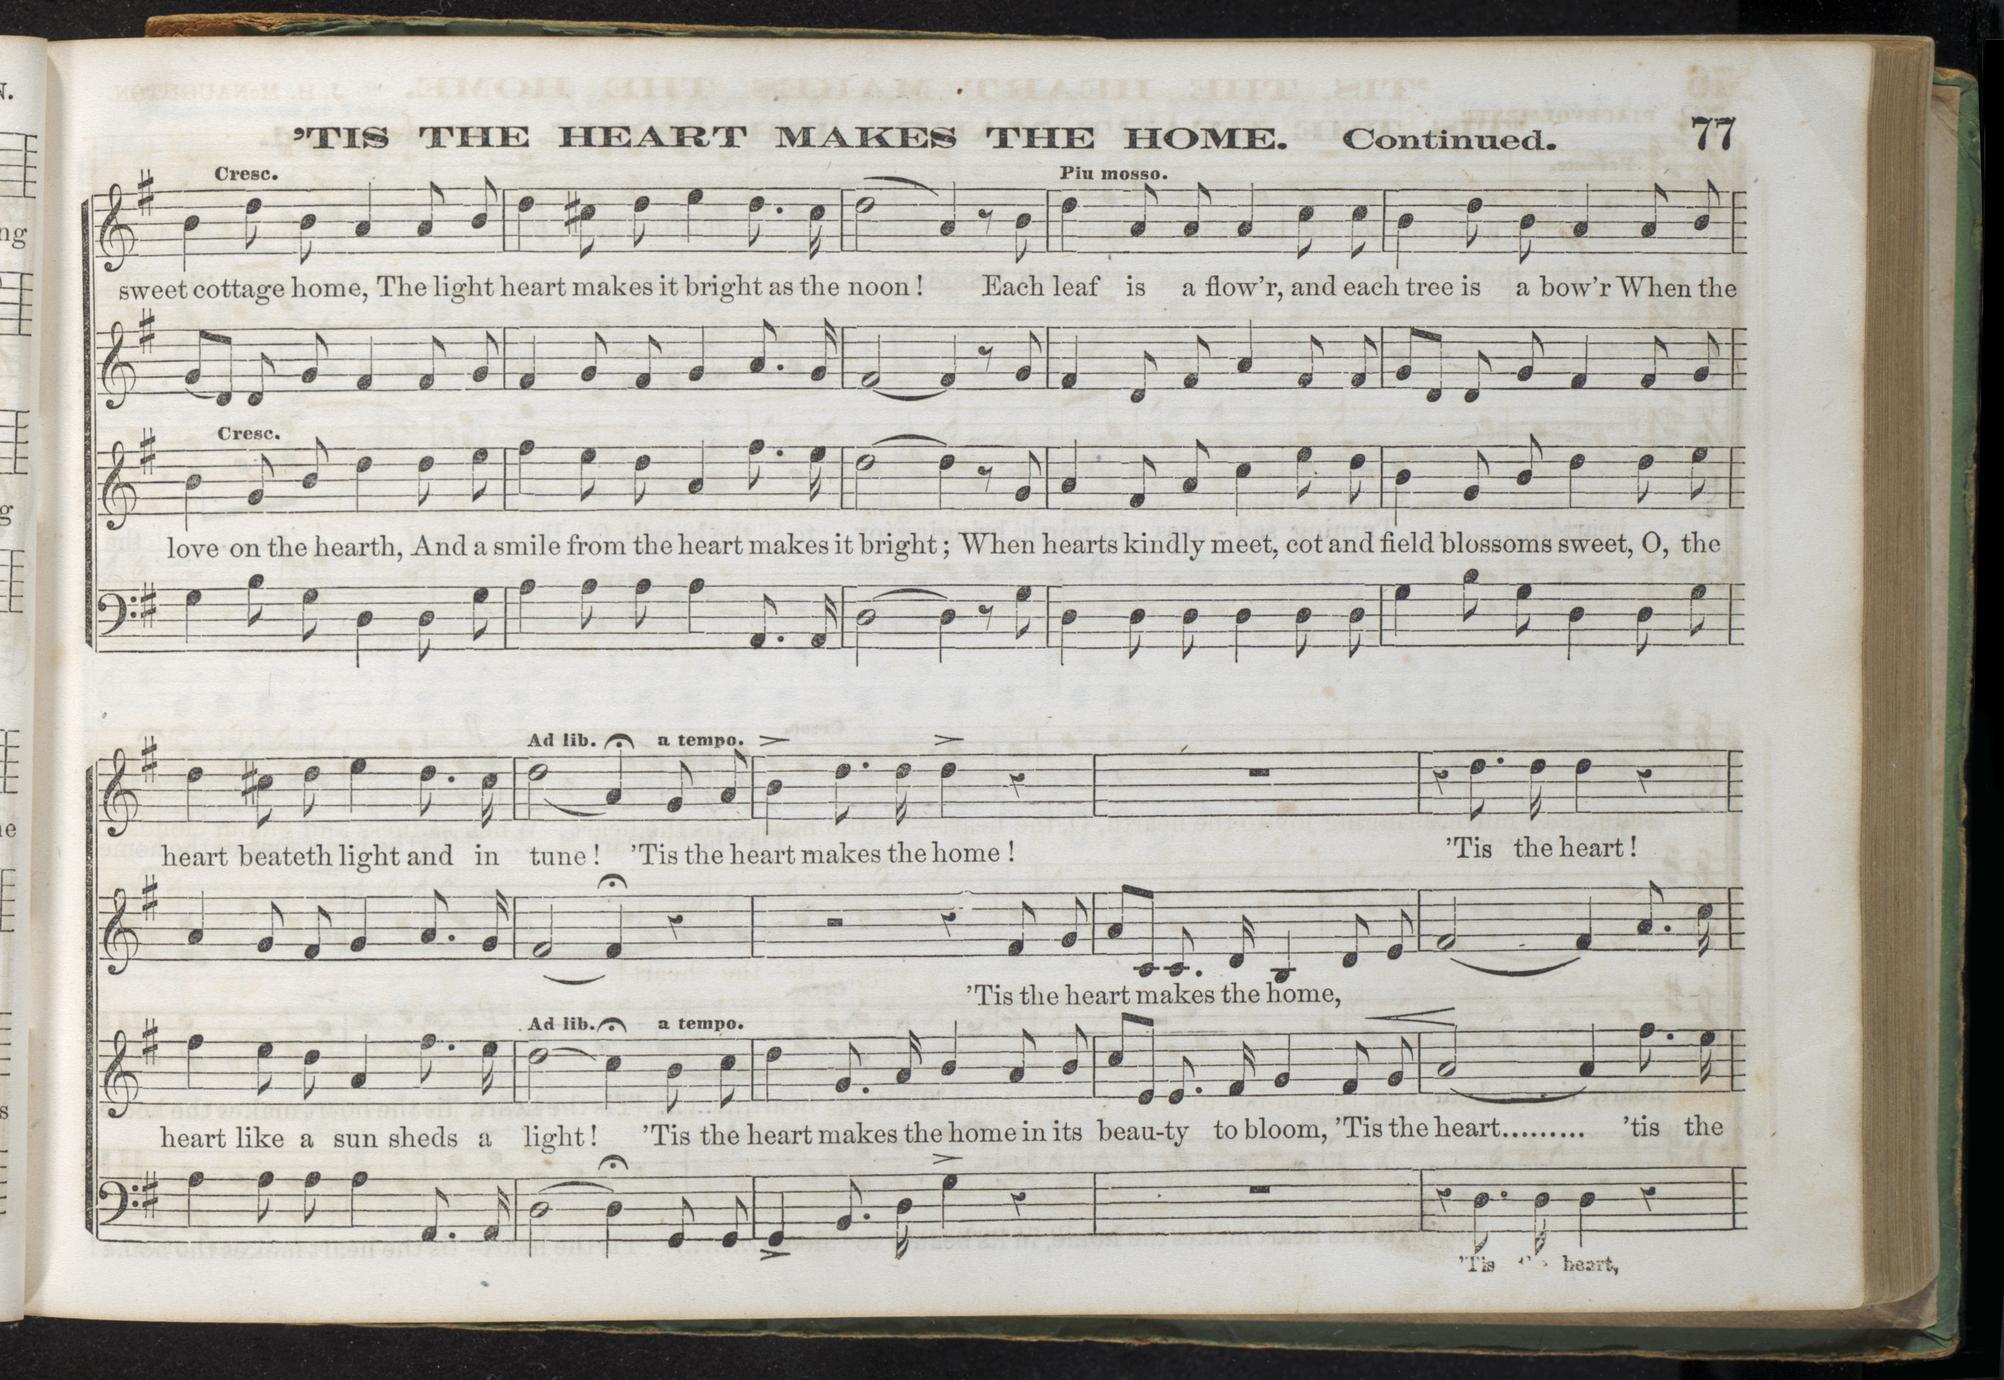 'TIS THE HEART MAKES THE HOME. Continued. 77
Cresc. Piu mosso.
sweet cottage home, The light heart makes it bright as the noon ! Each leaf is a flow'r, and each tree is a bow'r When the
Cresc.
love on the hearth, And a smile from the heart makes it bright ; When hearts kindly meet, cot and field blossoms sweet, O, the
Ad lib. a tempo.
heart beateth light and in tune ! 'Tis the heart makes the home ! 'Tis the heart !
'Tis the heart makes the home,
Ad lib. a tempo.
heart like a sun sheds a light ! 'Tis the heart makes the home in its beau-ty to bloom, 'Tis the heart......... 'tis the
'Tis heart,